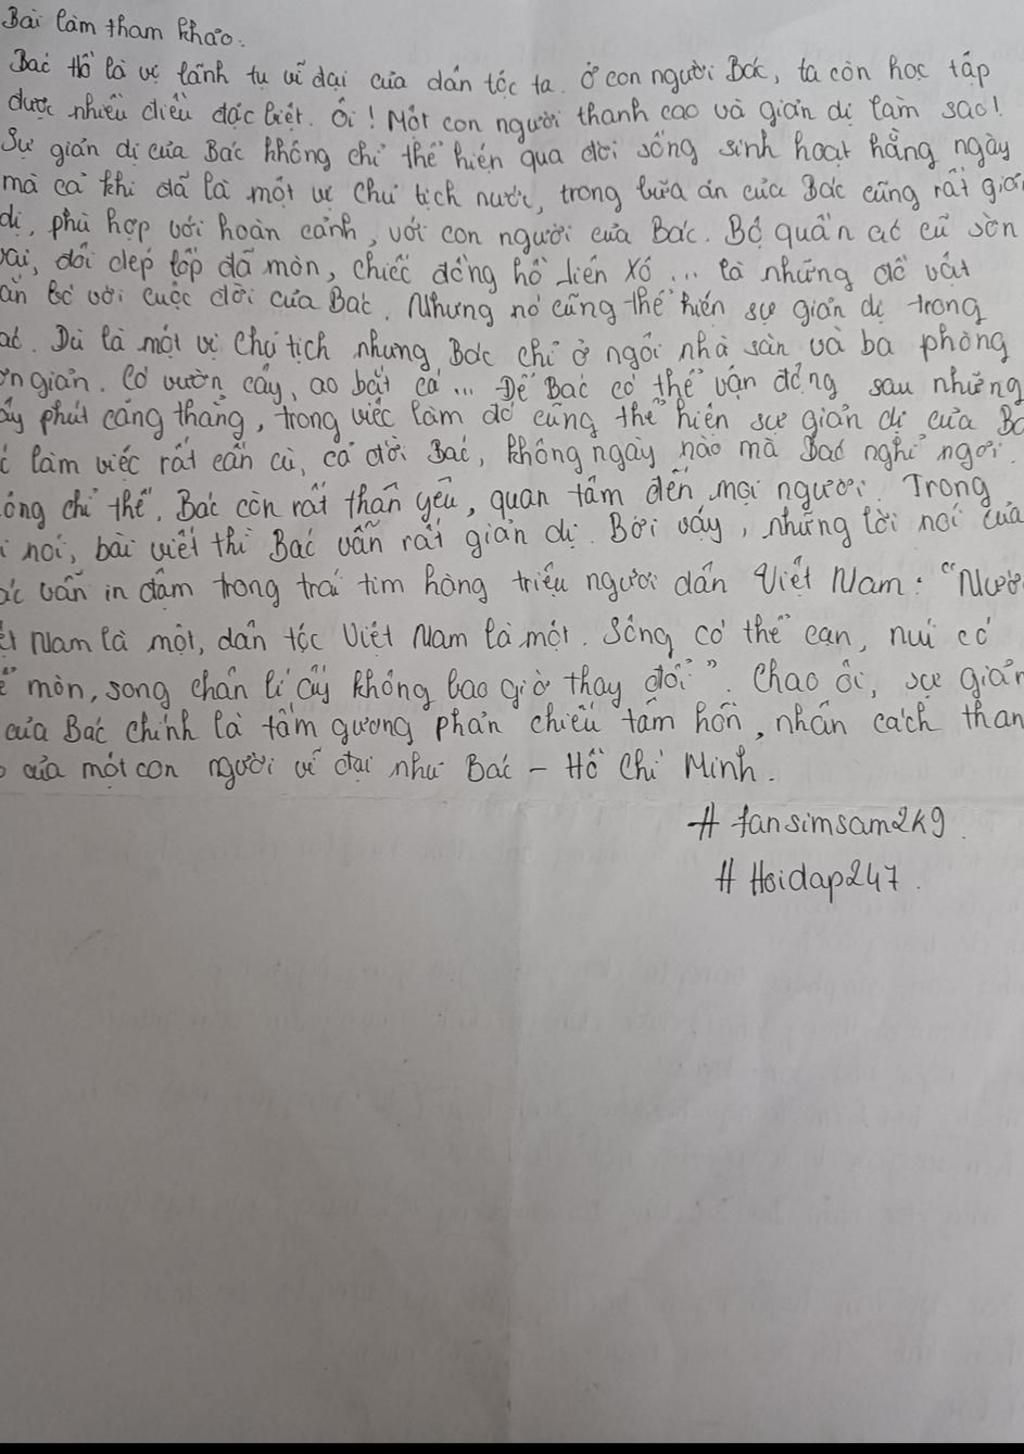 Bài làm tham khảo.
Bác Hồ là vị lãnh tụ vĩ đại của dân tộc ta. Ở con người Bác, ta còn học tập
được nhiều điều đặc biệt. Ôi! Một con người thanh cao và giản dị làm sao!
Sự giản dị của Bác không chỉ thể hiện qua đời sống sinh hoạt hằng ngày
mà cả khi đã là một vị Chủ tịch nước, trong bữa ăn của Bác cũng rất giản
dị, phù hợp với hoàn cảnh, với con người của Bác. Bộ quần áo cũ sờn
vai, đôi dép lốp đã mòn, chiếc đồng hồ Liên Xô ... là những đồ vật
ắn bó với cuộc đời của Bác. Nhưng nó cũng thể hiện sự giản dị trong
ác. Dù là một vị Chủ tịch nhưng Bác chỉ ở ngôi nhà sàn và ba phòng
ơn giản. Có vườn cây, ao bắt cá ... Để Bác có thể vận động sau những
ây phút căng thẳng, trong việc làm đó cũng thể hiện sự giản dị của Bá
c làm việc rất cần cù, cả đời Bác, không ngày nào mà Bác nghỉ ngơi.
ông chỉ thế, Bác còn rất thân yêu, quan tâm đến mọi người. Trong
i nói, bài viết thì Bác vẫn rất giản dị. Bởi vậy, những lời nói của
ác vẫn in đậm trong trái tim hàng triệu người dân Việt Nam: "Nướ
ệt Nam là một, dân tộc Việt Nam là một. Sông có thể cạn, núi có
ể mòn, song chân lí ấy không bao giờ thay đổi". Chao ôi, sự giản
của Bác chính là tấm gương phản chiếu tâm hồn, nhân cách than
o của một con người vĩ đại như Bác - Hồ Chí Minh.
# fansimsam2k9.
# Hoidap247.